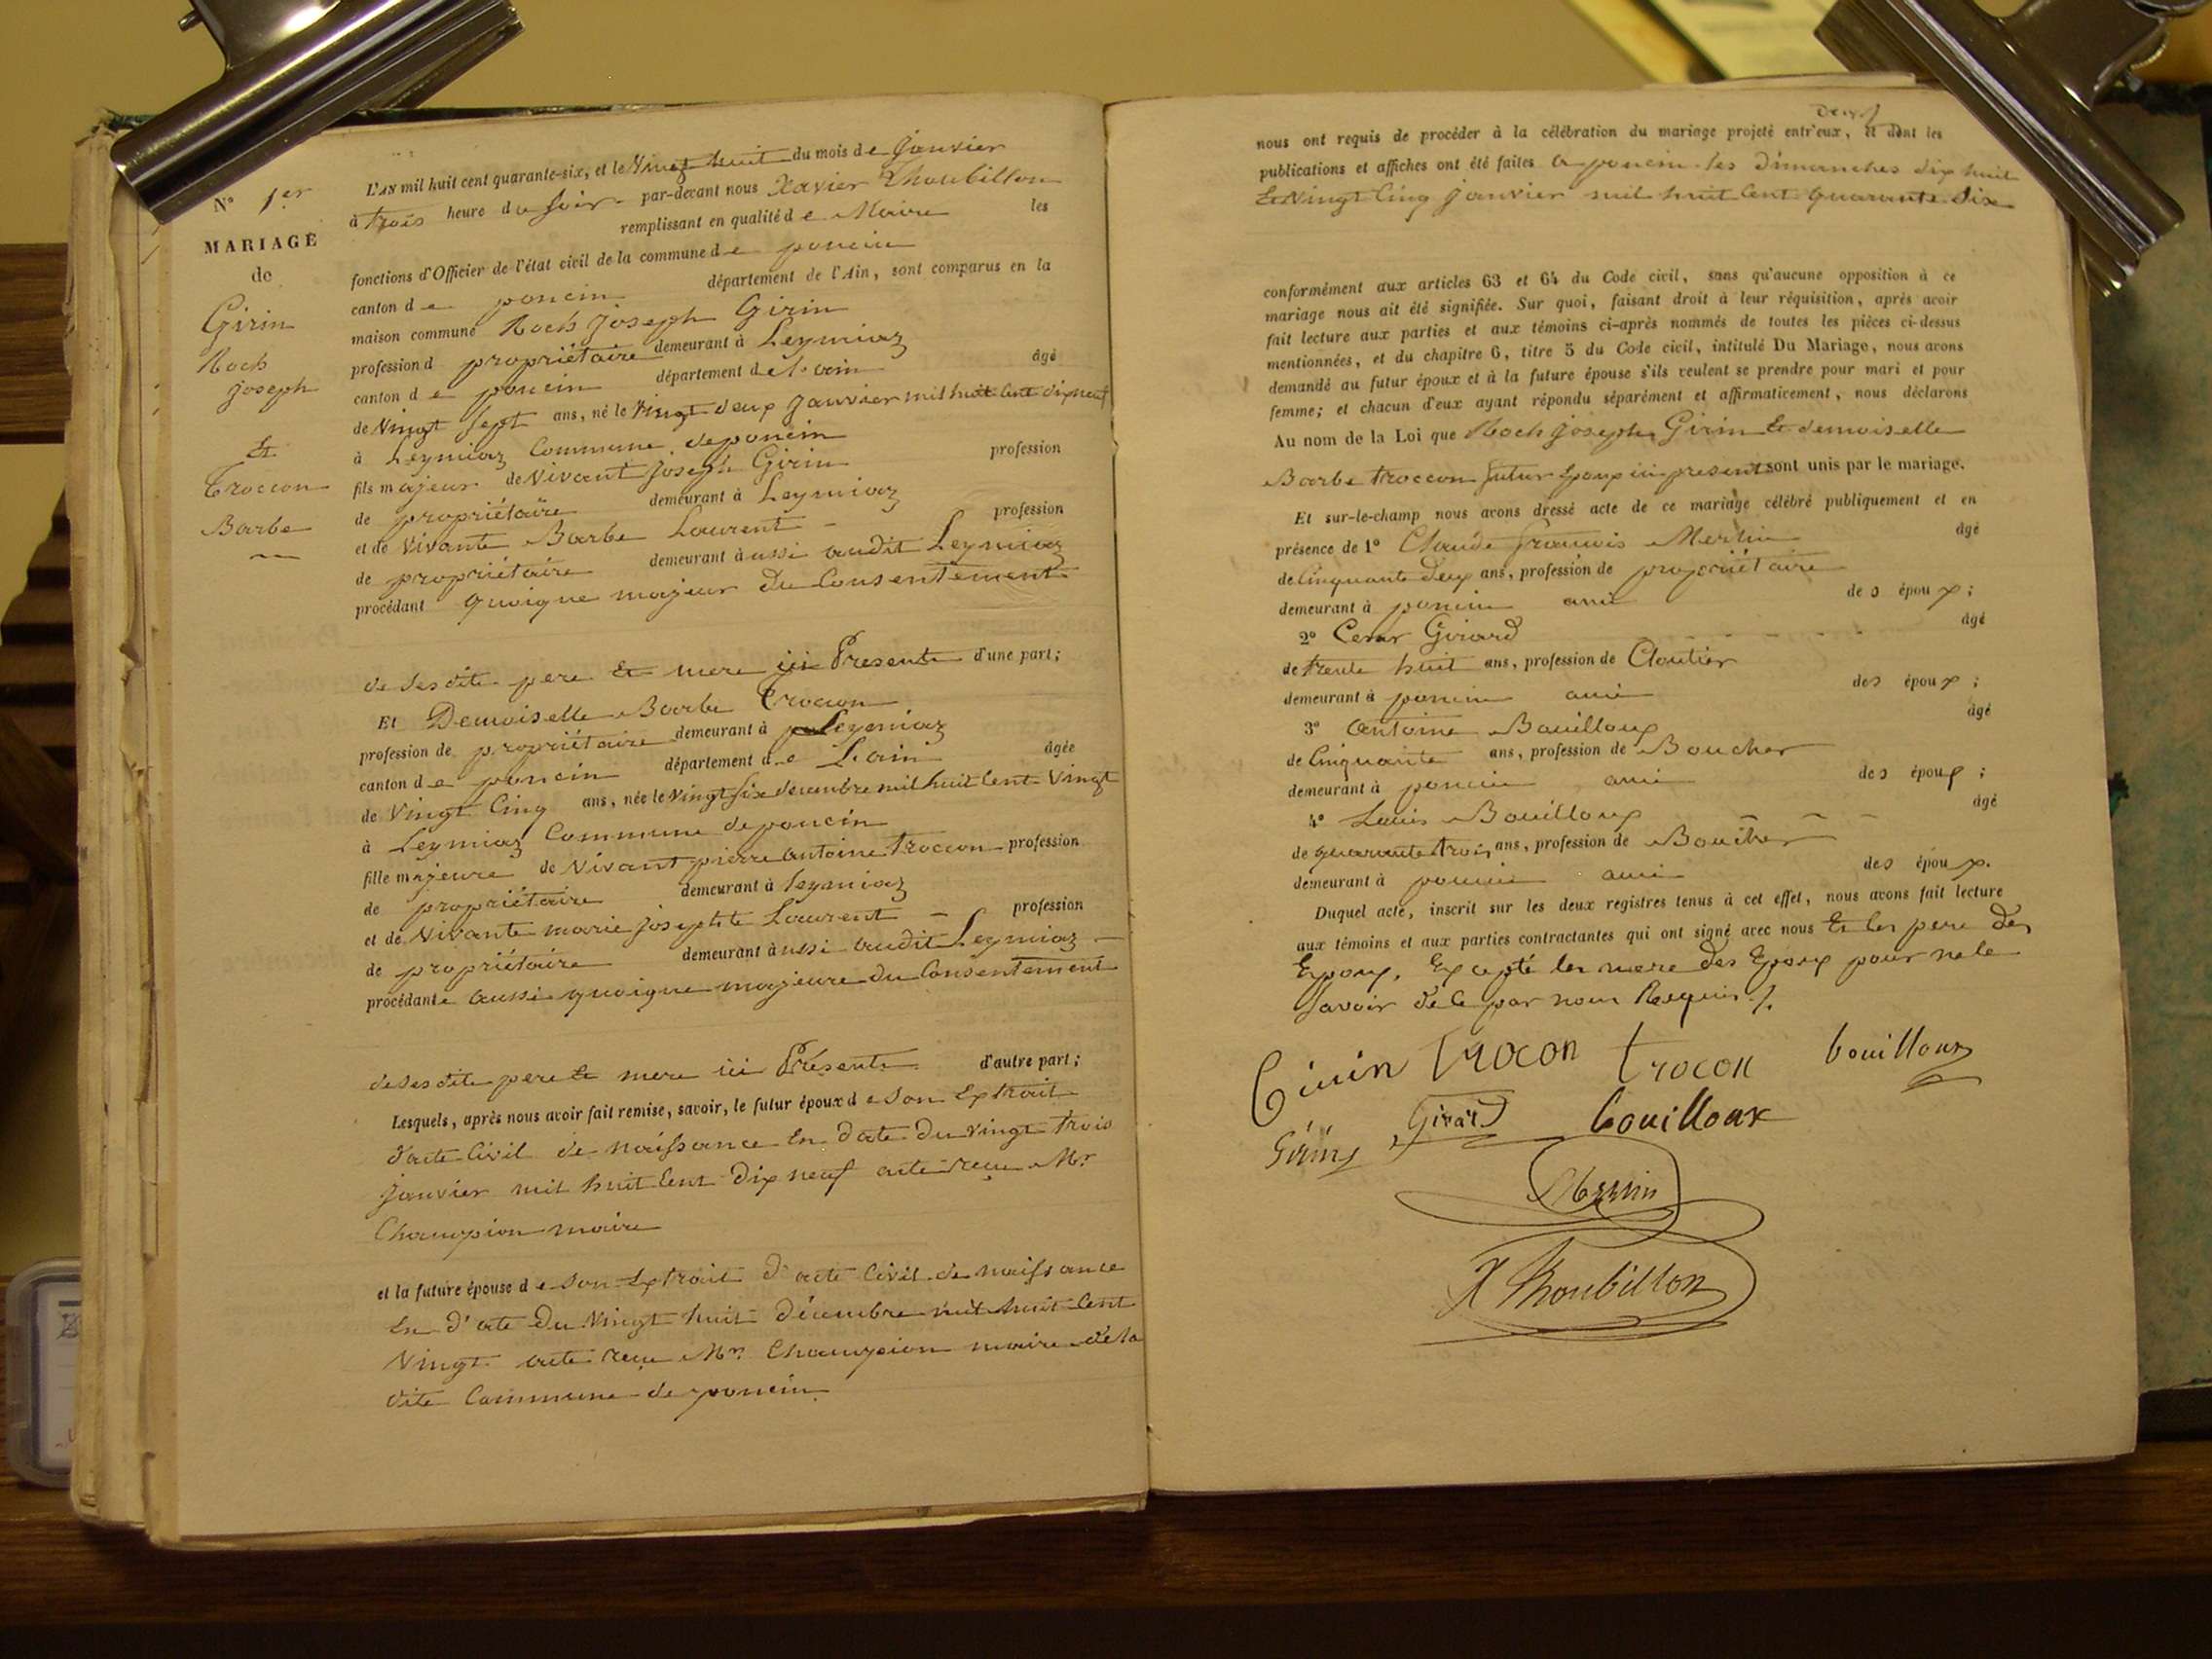 N° 1er
MARIAGE
de
Girin
Roch
Joseph
Et
Troccon
Barbe
L'AN mil huit cent quarante-six, et le Vingt huit du mois de Janvier
à trois heure du Soir par-devant nous Xavier Thoubillon
remplissant en qualité de Maire les
fonctions d'Officier de l'état civil de la commune de poncin
canton de poncin département de l'Ain, sont comparus en la
maison commune Roch Joseph Girin
profession d propriétaire demeurant à Leymiaz
canton de poncin département de l'ain âgé
de Vingt Sept ans, né le Vingt deux Janvier mil huit Cent dix neuf
à Leymiaz Commune de poncin
fils majeur de Vivant Joseph Girin profession
de propriétaire demeurant à Leymiaz
et de Vivante Barbe Laurent profession
de propriétaire demeurant àussi audit Leymiaz
procédant quoique majeur du Consentement
de Ses dits pere Et mere ici Presents d'une part;
Et Demoiselle Barbe Trocon
profession de propriétaire demeurant à Leymiaz
canton de poncin département de L'ain âgée
de Vingt Cinq ans, née le Vingt Six decembre mil huit Cent Vingt
à Leymiaz Commune de poncin
fille majeure de Vivant pierre antoine Troccon profession
de propriétaire demeurant à Leymiaz
et de Vivante marie Josephte Laurent profession
de propriétaire demeurant àussi audit Leymiaz
procédante aussi quoique majeure du Consentement
de Ses dits pere Et mere ici Présents d'autre part;
Lesquels, après nous avoir fait remise, savoir, le futur époux de Son Extrait
d'acte Civil de naissance En date du Vingt trois
Janvier mil huit Cent Dix neuf acte reçu Mr
Champion maire
et la future épouse de Son Extrait d'acte Civil de naissance
En d'ate du Vingt huit Décembre mil huit Cent
Vingt acte reçu Mr. Champion maire de la
dite Commune de poncin
deux
nous ont requis de procéder à la célébration du mariage projeté entr'eux, et dont les
publications et affiches ont été faites a poncin les Dimanches dix huit
Et Vingt Cinq Janvier mil huit Cent quarante Six
conformément aux articles 63 et 64 du Code civil, sans qu'aucune opposition à ce
mariage nous ait été signifiée. Sur quoi, faisant droit à leur réquisition, après avoir
fait lecture aux parties et aux témoins ci-après nommés de toutes les pièces ci-dessus
mentionnées, et du chapitre 6, titre 5 du Code civil, intitulé Du Mariage, nous avons
demandé au futur époux et à la future épouse s'ils veulent se prendre pour mari et pour
femme; et chacun d'eux ayant répondu séparément et affirmativement, nous déclarons
Au nom de la Loi que Roch Joseph Girin Et demoiselle
Barbe Troccon futur Epoux ici presents sont unis par le mariage.
Et sur-le-champ nous avons dressé acte de ce mariage célébré publiquement et en
présence de 1° Claude françois Merlin âgé
de Cinquante deux ans, profession de propriétaire
demeurant à poncin ami des époux;
2° Cesar Girard âgé
de trente huit ans, profession de Cloutier
demeurant à poncin ami des époux;
3° Antoine Bouilloux âgé
de Cinquante ans, profession de Boucher
demeurant à poncin ami des époux;
4° Louis Bouilloux âgé
de quarante trois ans, profession de Boucher
demeurant à poncin ami des époux.
Duquel acte, inscrit sur les deux registres tenus à cet effet, nous avons fait lecture
aux témoins et aux parties contractantes qui ont signé avec nous Et les pere Des
Epoux, Excepté les mere des Epoux pour ne le
Savoir de ce par nous Requis ./.
Girin Trocon trocon bouilloux
Girin Girard bouilloux
Merlin
X Thoubillon